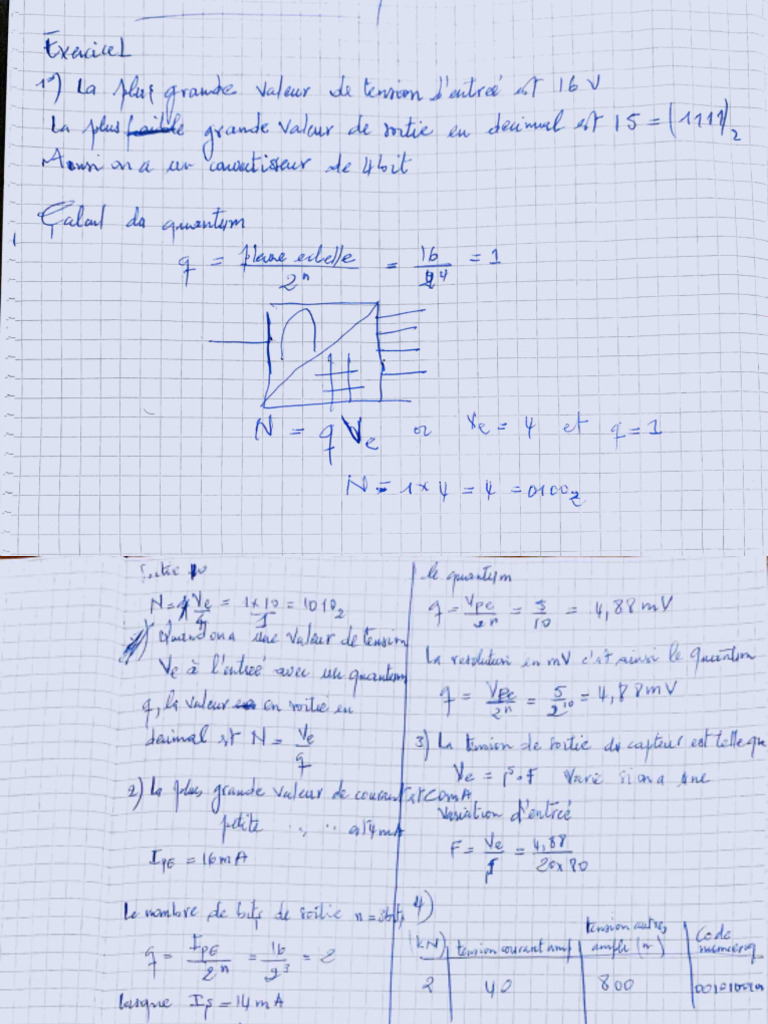 Exercice1
1°) La plus grande valeur de tension d'entreé est 16 V
La plus faible grande valeur de sortie en decimal est 15 = (1111)₂
Ainsi on a un convertisseur de 4 bit
Calcul du quantum
q = pleine echelle / 2ⁿ = 16 / 2⁴ = 1
N = q Ve or Ve = 4 et q = 1
N = 1 × 4 = 4 = 0100₂
N = Ve / q = 1×10 / 1 = 1010₂
1) Quand on a une valeur de tension
Ve à l'entreé avec un quantum
q, la valeur en sortie en
decimal est N = Ve / q
2) La plus grande valeur de courant est 20mA
petite " " est 4mA
IPE = 16mA
Le nombre de bits de sortie n = 3bits
q = IPE / 2ⁿ = 16 / 2³ = 2
lorsque Is = 14mA
le quantum
q = VPE / 2ⁿ = 5 / 10 = 4,88 mV
La resolution en mV c'est ainsi le quantum
q = VPE / 2ⁿ = 5 / 2¹⁰ = 4,88mV
3) La tension de sortie du capteur est telle que
Ve = ρ.F varie si on a une
variation d'entreé
F = Ve / ρ = 4,88 / 20×80
4)
(kN) tension courant ampl tension autre ampli (n) Code numerique
2 40 800